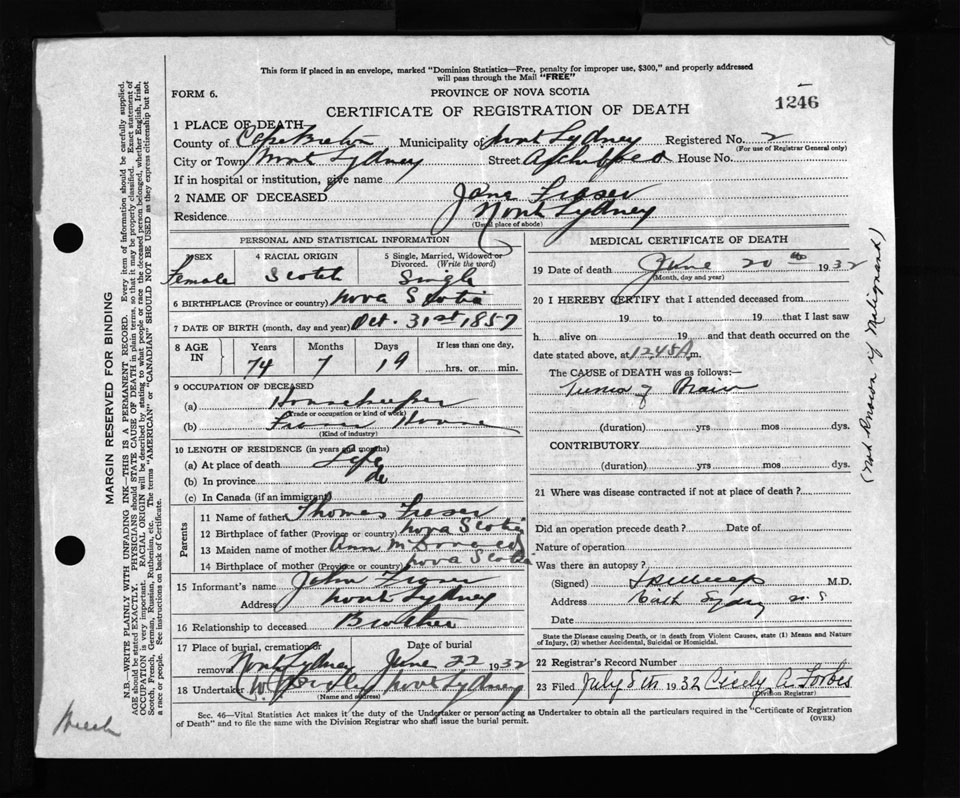 This form if placed in an envelope, marked "Dominion Statistics—Free, penalty for improper use, $300," and properly addressed
will pass through the Mail "FREE"
FORM 6.
PROVINCE OF NOVA SCOTIA
CERTIFICATE OF REGISTRATION OF DEATH
1246
1 PLACE OF DEATH
County of Cape Breton Municipality of North Sydney Registered No. 2
(For use of Registrar General only)
City or Town North Sydney Street Archibald House No.
If in hospital or institution, give name
2 NAME OF DECEASED Jane Fraser
Residence North Sydney
(Usual place of abode)
PERSONAL AND STATISTICAL INFORMATION
3 SEX Female
4 RACIAL ORIGIN Scotch
5 Single, Married, Widowed or Divorced. (Write the word) Single
6 BIRTHPLACE (Province or country) Nova Scotia
7 DATE OF BIRTH (month, day and year) Oct. 31st 1857
8 AGE IN Years 74 Months 7 Days 19 If less than one day, hrs. or min.
9 OCCUPATION OF DECEASED
(a) Housekeeper
(Trade or occupation or kind of work)
(b) Home
(Kind of industry)
10 LENGTH OF RESIDENCE (in years and months)
(a) At place of death Life
(b) In province do
(c) In Canada (if an immigrant)
Parents
11 Name of father Thomas Fraser
12 Birthplace of father (Province or country) Nova Scotia
13 Maiden name of mother Ann
14 Birthplace of mother (Province or country) Nova Scotia
15 Informant's name John Fraser
Address North Sydney
16 Relationship to deceased Brother
17 Place of burial, cremation or removal North Sydney Date of burial June 22 1932
18 Undertaker W. North Sydney
(Name and address)
MEDICAL CERTIFICATE OF DEATH
19 Date of death June 20th 1932
(Month, day and year)
20 I HEREBY CERTIFY that I attended deceased from
19 to 19 that I last saw
h alive on 19 and that death occurred on the
date stated above, at 12.45 A m.
The CAUSE OF DEATH was as follows:—
Tumor of Brain
(duration) yrs mos dys.
CONTRIBUTORY
(duration) yrs mos dys.
21 Where was disease contracted if not at place of death?
Did an operation precede death? Date of
Nature of operation
Was there an autopsy?
(Signed) M.D.
Address North Sydney N.S.
Date
State the Disease causing Death, or in death from Violent Causes, state (1) Means and Nature
of Injury, (2) whether Accidental, Suicidal or Homicidal.
22 Registrar's Record Number
23 Filed July 5th 1932 Cecily A. Forbes
(Division Registrar)
Sec. 46—Vital Statistics Act makes it the duty of the Undertaker or person acting as Undertaker to obtain all the particulars required in the "Certificate of Registration
of Death" and to file the same with the Division Registrar who shall issue the burial permit.
(OVER)
(Not Known if Malignant)
MARGIN RESERVED FOR BINDING
N.B.—WRITE PLAINLY WITH UNFADING INK—THIS IS A PERMANENT RECORD. Every item of information should be carefully supplied.
AGE should be stated EXACTLY. PHYSICIANS should STATE CAUSE OF DEATH in plain terms, so that it may be properly classified. Exact statement of
OCCUPATION is very important. RACIAL ORIGIN will be described by stating to what people or race the deceased person belonged, whether English, Irish,
Scotch, French, German, Russian, Ruthenian, etc. The terms "AMERICAN" or "CANADIAN" SHOULD NOT BE USED as they express citizenship but not
a race or people. See instructions on back of Certificate.